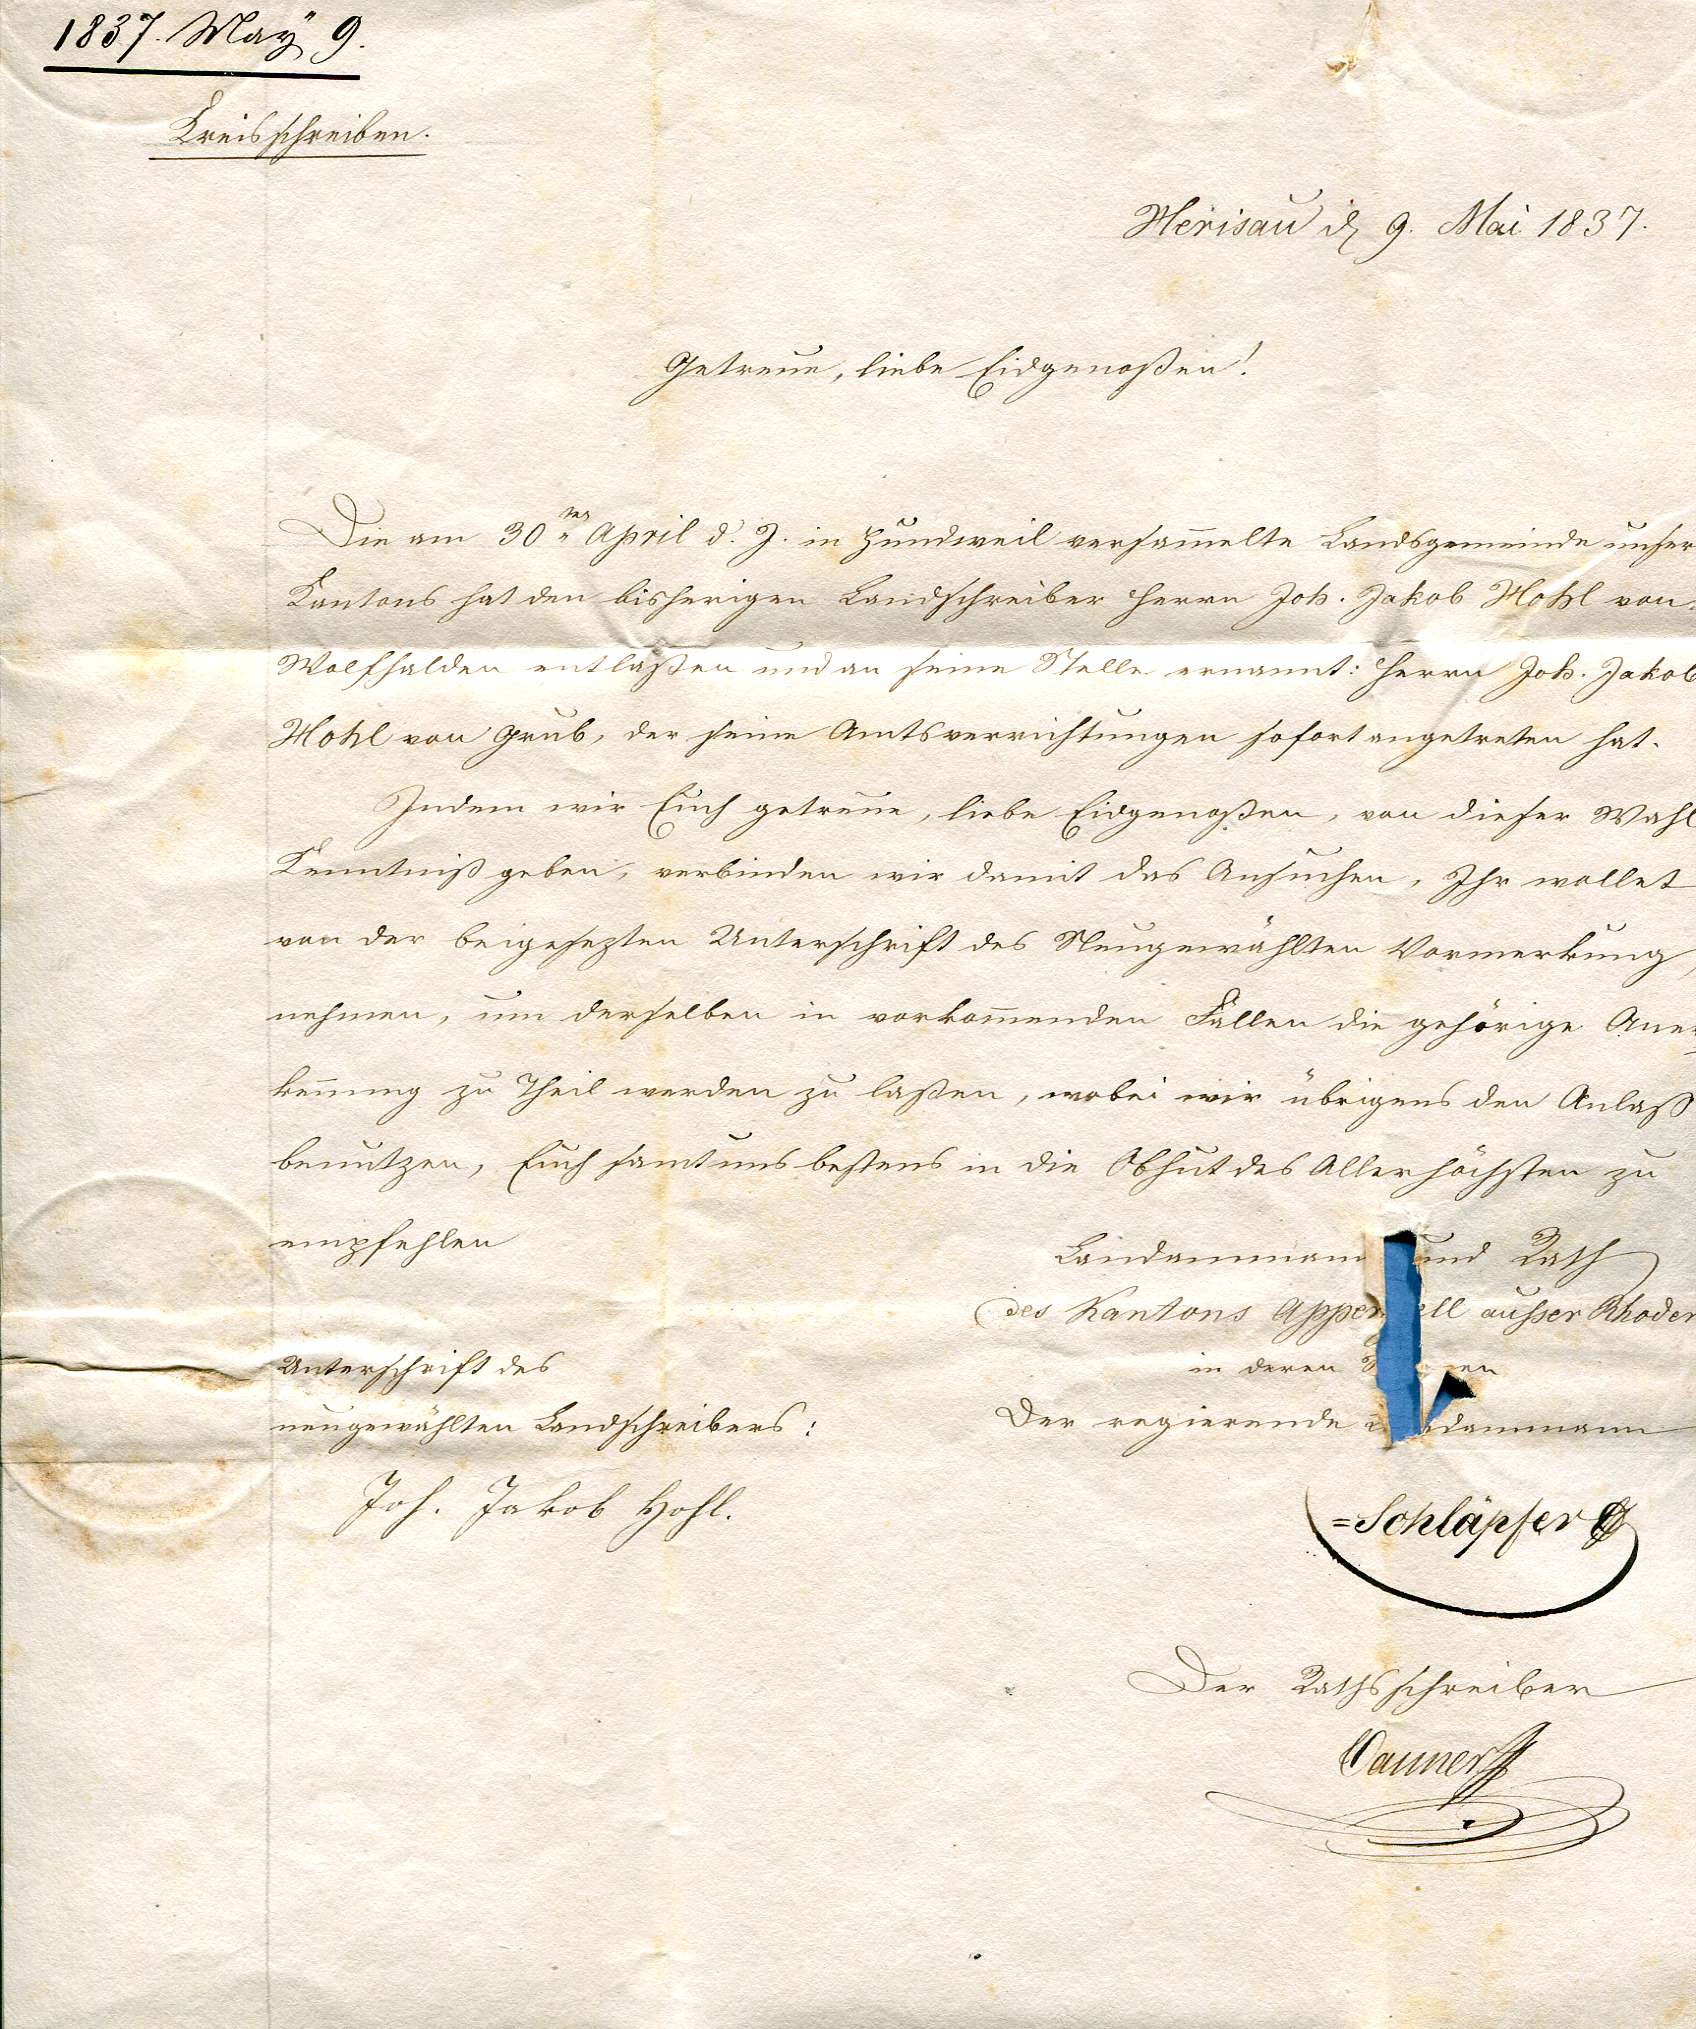 1837. May 9.
Kreisschreiben.
Herisau d. 9. Mai 1837.
Getreue, liebe Eidgenoßen!
Die am 30ten April d. J. in Hundweil versam̄elte Landsgemeinde unser
Kantons hat den bisherigen Landschreiber Herrn Joh. Jakob Hohl von
Wolfhalden entlaßen und an seine Stelle ernannt: Herrn Joh. Jakob
Hohl von Grub, der seine Amtsverrichtungen sofort angetreten hat.
Indem wir Euch getreue, liebe Eidgenoßen, von dieser Wahl
Kenntniß geben, verbinden wir damit das Ansuchen, Ihr wollet
von der beigesezten Unterschrift des Neugewählten Vormerkung
nehmen, um derselben in vorkom̄enden Fällen die gehörige Aner,
ken̄ung zu Theil werden zu laßen, wobei wir übrigens den Anlaß
benutzen, Euch samt uns bestens in die Obhut des Allerhöchsten zu
empfehlen
Landamman und Rath
des Kantons Appen ell ausser Rhoden
in deren en
Der regierende dammann
Schläpfer
Unterschrift des
neugewählten Landschreibers:
Joh. Jakob Hohl.
Der Rathsschreiber